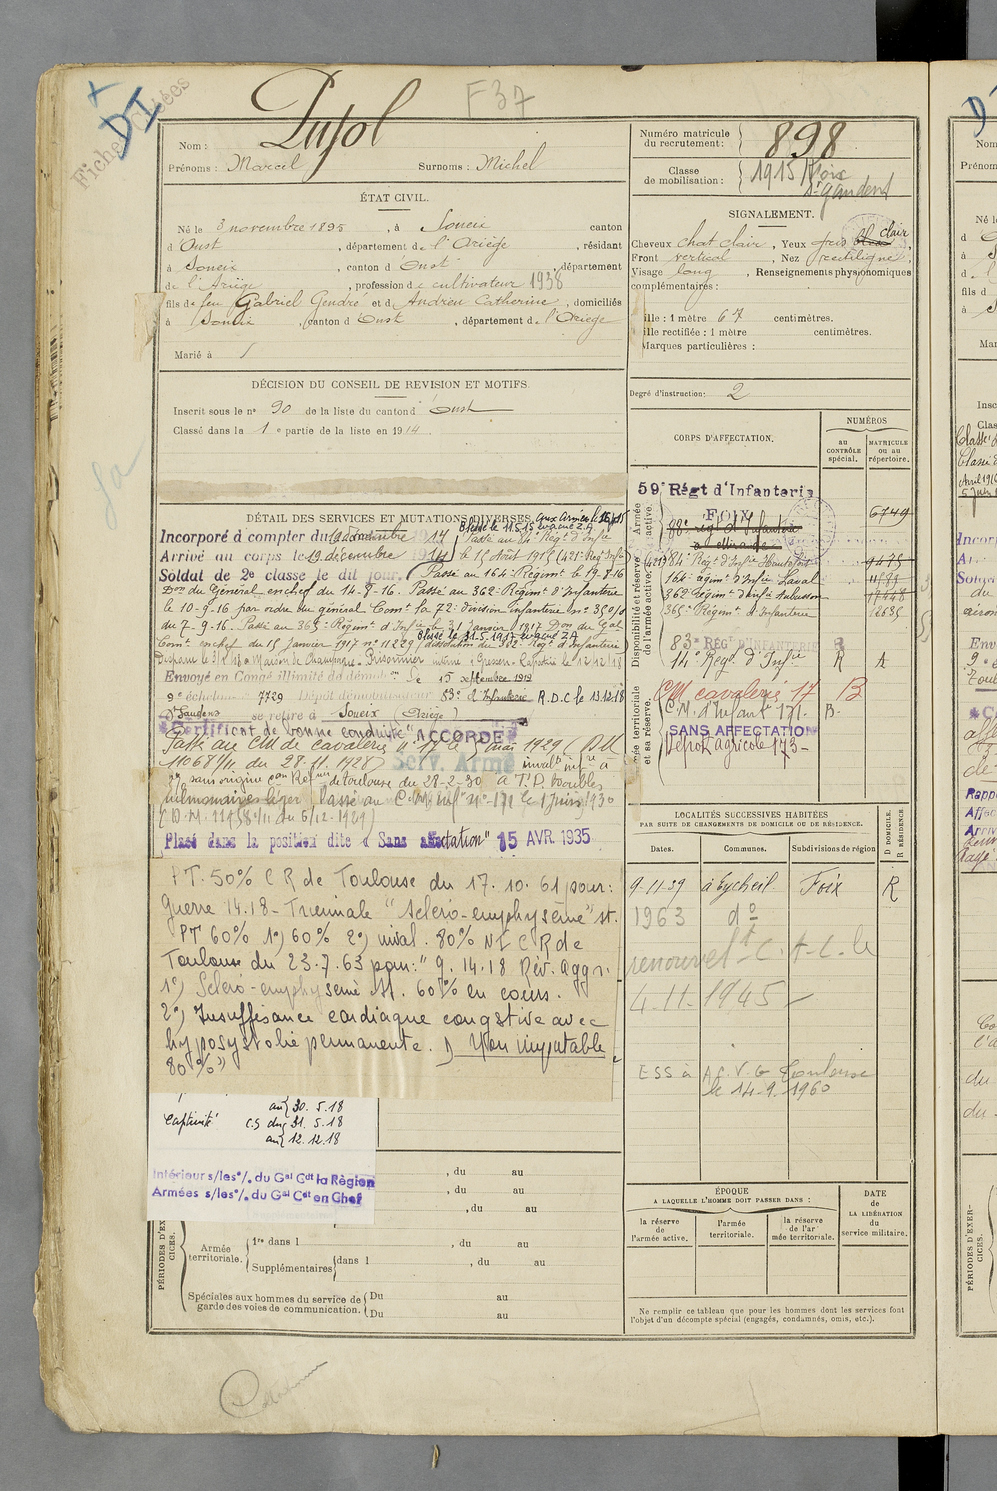 DI
Fiches
F37
Nom : Pujol
Prénoms : Marcel Surnoms : Michel
ÉTAT CIVIL.
Né le 3 novembre 1895, à Soueix canton
d'Oust, département de l'Ariège, résidant
à Soueix, canton d'Oust, département
de l'Ariège, profession de cultivateur 1938
fils de feu Gabriel Gendre et de Andrieu Catherine, domiciliés
à Soueix, canton d'Oust, département de l'Ariège
Marié à
DÉCISION DU CONSEIL DE REVISION ET MOTIFS.
Inscrit sous le n° 90 de la liste du canton d'Oust
Classé dans la 1e partie de la liste en 1914.
DÉTAIL DES SERVICES ET MUTATIONS DIVERSES.
Blessé le 11.5.15 évacué Z.A.
Incorporé à compter du 19 décembre 1914
Passé au 84e Rég. d'Infie
Arrivé au corps le 19 décembre 1914
le 15 Août 1915 (421e Rég. Infie
Soldat de 2e classe le dit jour. Passé au 164e Régimt le 19-8-16
Don du Général en chef du 14-8-16. Passé au 362e Régimt d'Infanterie
le 10-9-16 par ordre du général Comt la 72e Division Infanterie n° 350/0
du 7-9-16. Passé au 365e Régimt d'Infie le 31 Janvier 1917 Don du Gal
Blessé le 31.5.1917 évacué Z.A
Comt en chef du 15 Janvier 1917 n° 11229 (dissolution du 362e Régt d'Infanterie)
Prisonnier interné à Giessen. Rapatrié le 12/12/18
Envoyé en Congé illimité de démobon le 15 septembre 1919
9e échelon n° 7729 Dépôt démobilisateur 83e d'Infanterie R.D.C le 13.12.18
St Gaudens se retire à Soueix (Ariège)
Certificat de bonne conduite "ACCORDÉ"
Passé au CM de cavalerie n° 17 le 1 mai 1929 (DM
11068/11 du 28-11-1928)
Serv. Armé
invalté infre à
sans origine con Réfme de Toulouse du 28-2-30 à T.P. troubles
pulmonaires léger. Passé au C.M. Inf n° 171 le 1 juin 1930
(D.M. 11458/11 du 6/12-1929)
Placé dans la position dite « Sans affectation" 15 AVR. 1935
PT. 50% C R de Toulouse du 17. 10. 61 pour:
Guerre 14.18 - Triennale "Scléro-emphysème" st.
PT 60% 1°) 60% 2°) inval. 80% NI C R de
Toulouse du 23.7.63 pour: "g. 14.18 Rév. aggr.
1°) Scléro-emphysème st. 60% en cours.
2°) Insuffisance cardiaque congstive avec
hyposystolie permanente. Non imputable
80%")
au 30. 5. 18
Captivité C.S du 31. 5. 18
au 12. 12. 18
Intérieur s/les °/. du Gal Cdt la Région
Armées s/les °/. du Gal Cdt en Chef
, du au
, du au
, du au
PÉRIODES D'EXERCICES.
Armée territoriale. 1re dans l , du au
Supplémentaires dans l , du au
Spéciales aux hommes du service de garde des voies de communication. Du au
Du au
Numéro matricule du recrutement : 898
Classe de mobilisation : 1915 Foix
St gaudens
SIGNALEMENT.
Cheveux chat clair, Yeux gris bleu clair,
Front vertical, Nez rectiligne,
Visage long, Renseignements physionomiques
complémentaires :
ille : 1 mètre 67 centimètres.
ille rectifiée : 1 mètre centimètres.
Marques particulières :
Degré d'instruction : 2
CORPS D'AFFECTATION.
NUMÉROS
au CONTRÔLE spécial.
MATRICULE ou au répertoire.
Armée active.
59e Régt d'Infanterie
FOIX
6749
88e régt d'Infanterie
à Mirande
Disponibilité et réserve de l'armée active.
(421e) 84e Régt d'Infie 9475
164e régimt d'Infie Laval
362e Régimt d'Infie Aubusson
365e Régimt d'Infanterie
83e RÉGt D'INFANTERIE R
14e Régt d'Infie R A
Armée territoriale et sa réserve.
CM cavalerie 17 B
C.M. d'Infant 171. B.
SANS AFFECTATION
Dépôt agricole 173
LOCALITÉS SUCCESSIVES HABITÉES
PAR SUITE DE CHANGEMENTS DE DOMICILE OU DE RÉSIDENCE.
Dates. Communes. Subdivisions de région D DOMICILE. R RÉSIDENCE
9.11.39 à Eycheil Foix R
1963 d°
renouvelt C.A.C. le
4-11-1945
ESS à A.C.V.G Toulouse
le 14.9.1960
ÉPOQUE
A LAQUELLE L'HOMME DOIT PASSER DANS :
la réserve de l'armée active.
l'armée territoriale.
la réserve de l'armée territoriale.
DATE de LA LIBÉRATION du service militaire.
Ne remplir ce tableau que pour les hommes dont les services font
l'objet d'un décompte spécial (engagés, condamnés, omis, etc.).